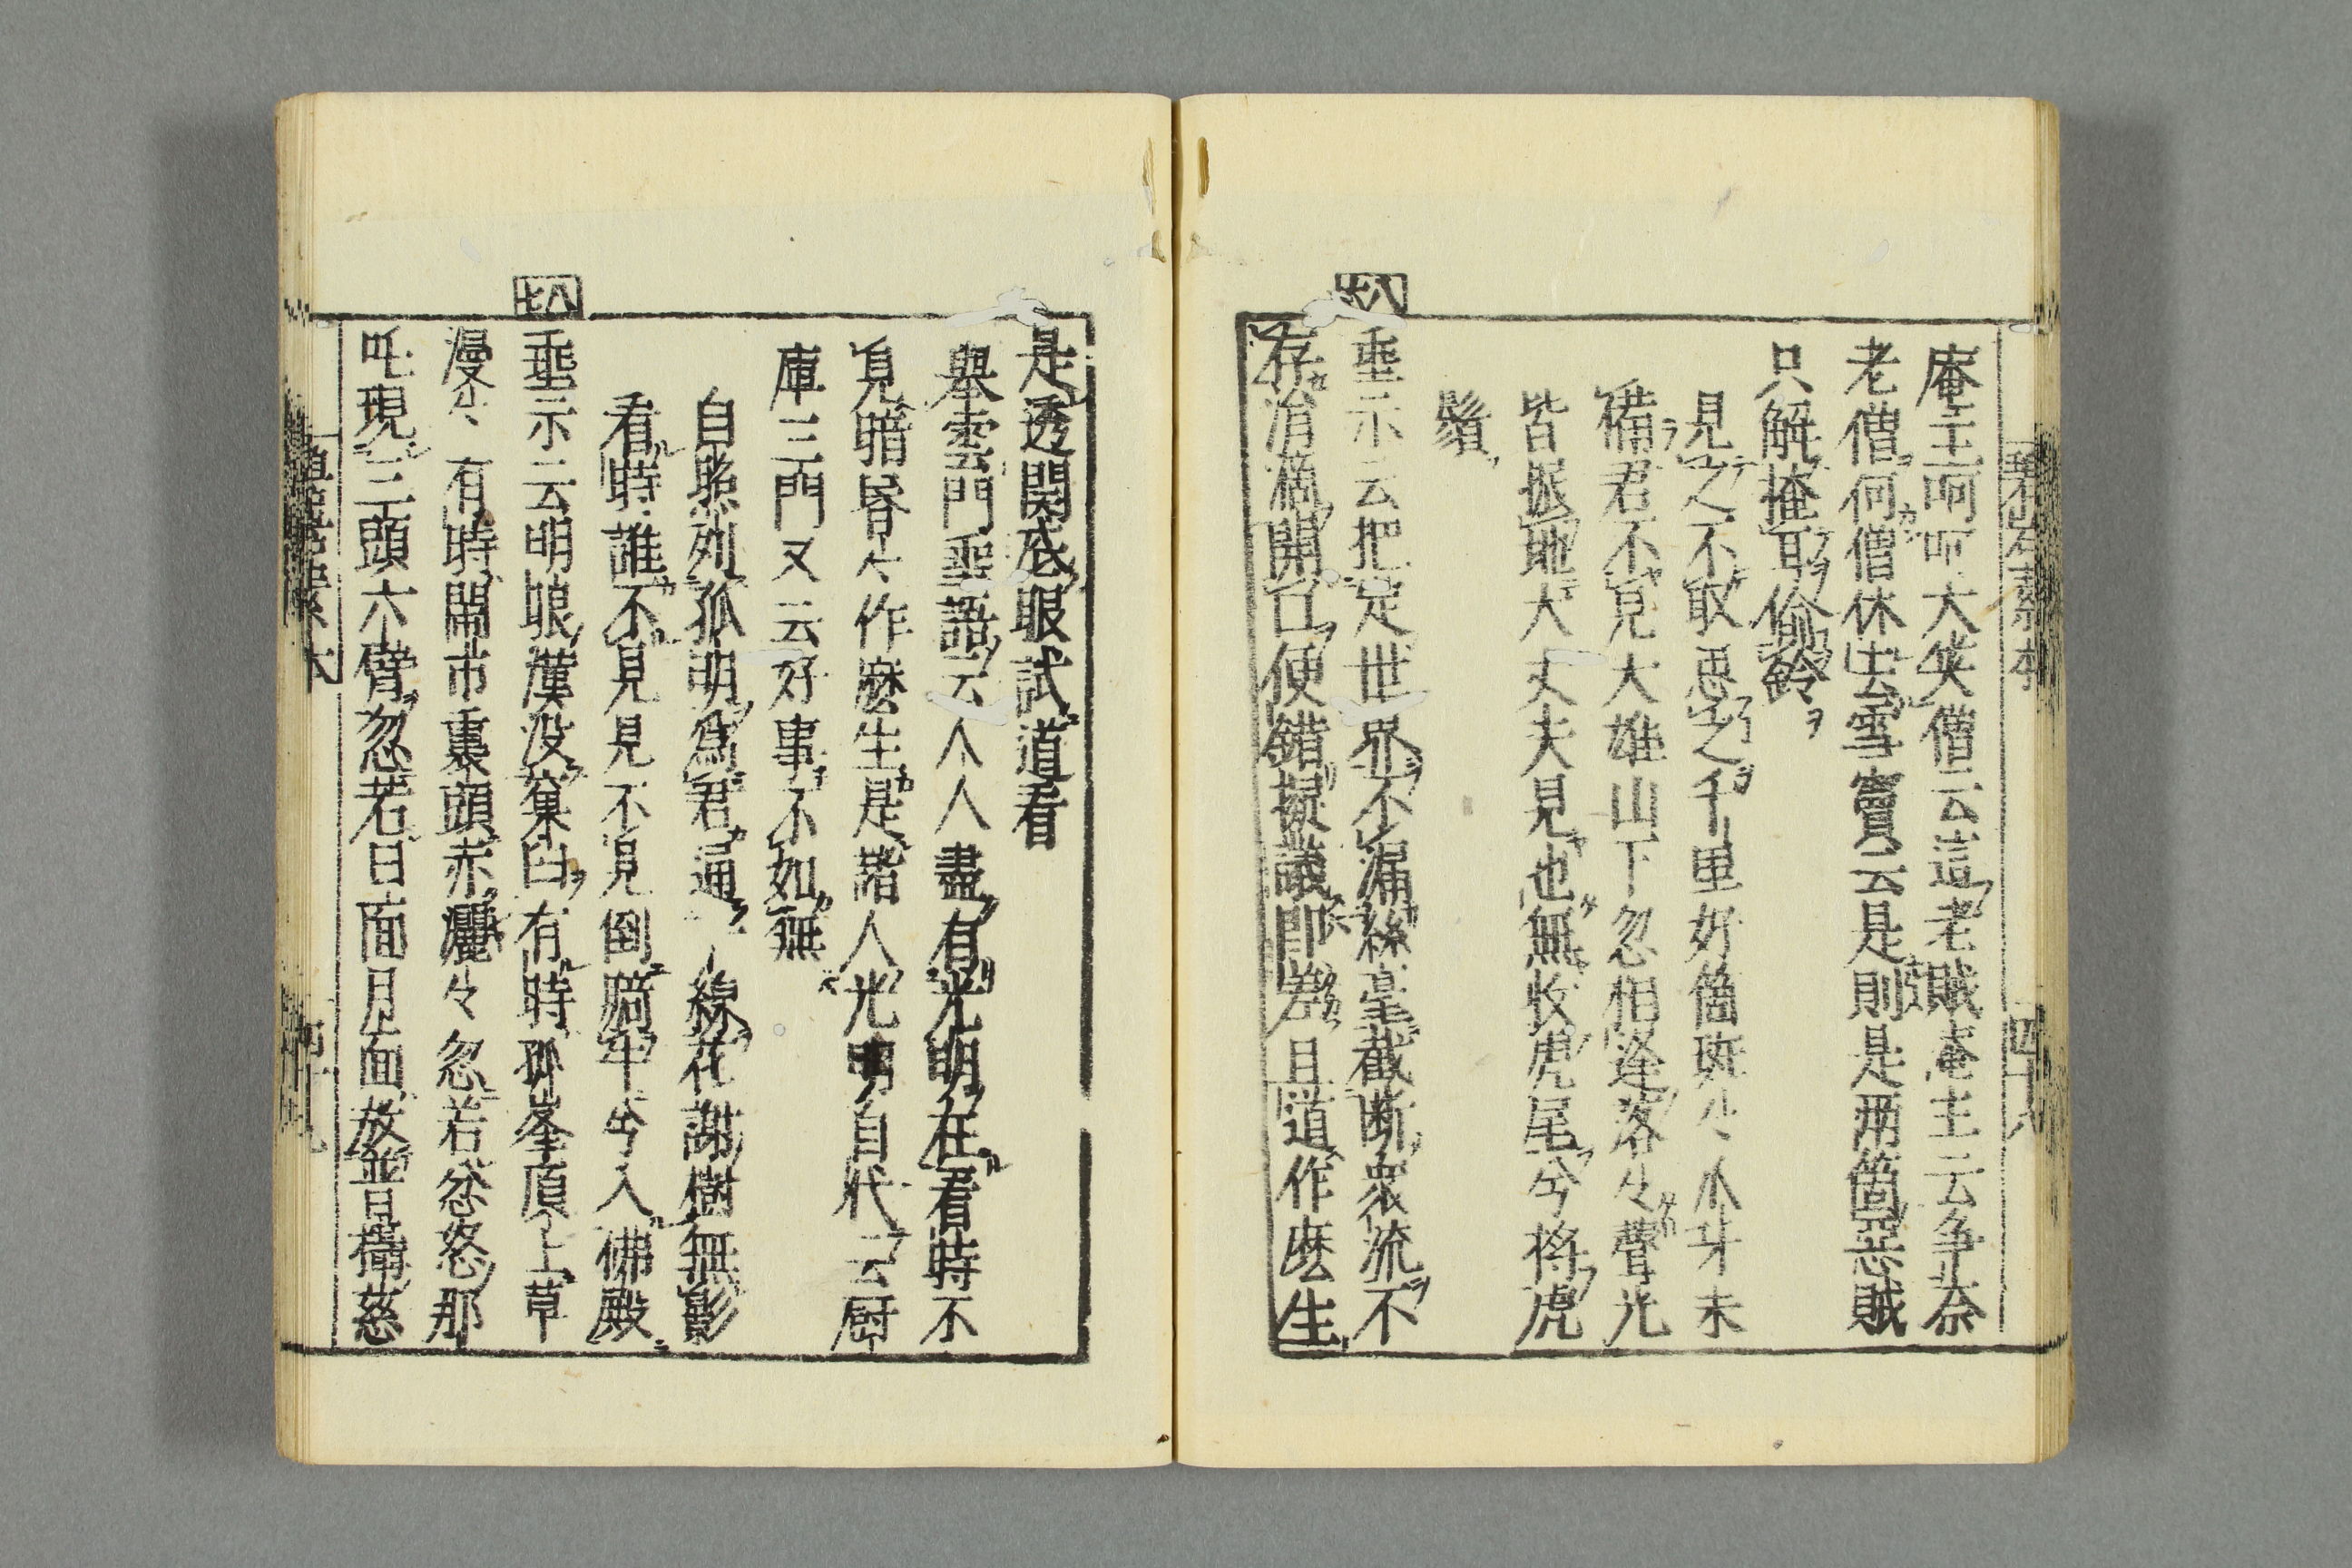 庵主呵呵大笑僧云這老賊庵主云争奈
老僧何僧休去雪竇云是則是両箇惡賊
只解掩耳偷鈴
見之不取思之千里好箇斑々爪牙未
備君不見大雄山下忽相逢落々聲光
皆振地大丈夫見也無收虎尾兮捋虎
鬚
八六
垂示云把定世界不漏絲毫截断衆流不
存涓滴開口便錯擬議即差且道作麽生
四十八
是透関底眼試道看
舉雲門垂語云人人盡有光明在看時不
見暗昏々作麽生是諸人光明自代云厨
庫三門又云好事不如無
自照列孤明為君通一線花謝樹無影
看時誰不見見不見倒騎牛兮入佛殿
八七
垂示云明眼漢没窠臼有時孤峯頂上草
漫々有時閙市裏頭赤灑々忽若忿怒那
吒現三頭六臂忽若日面月面放普攝慈